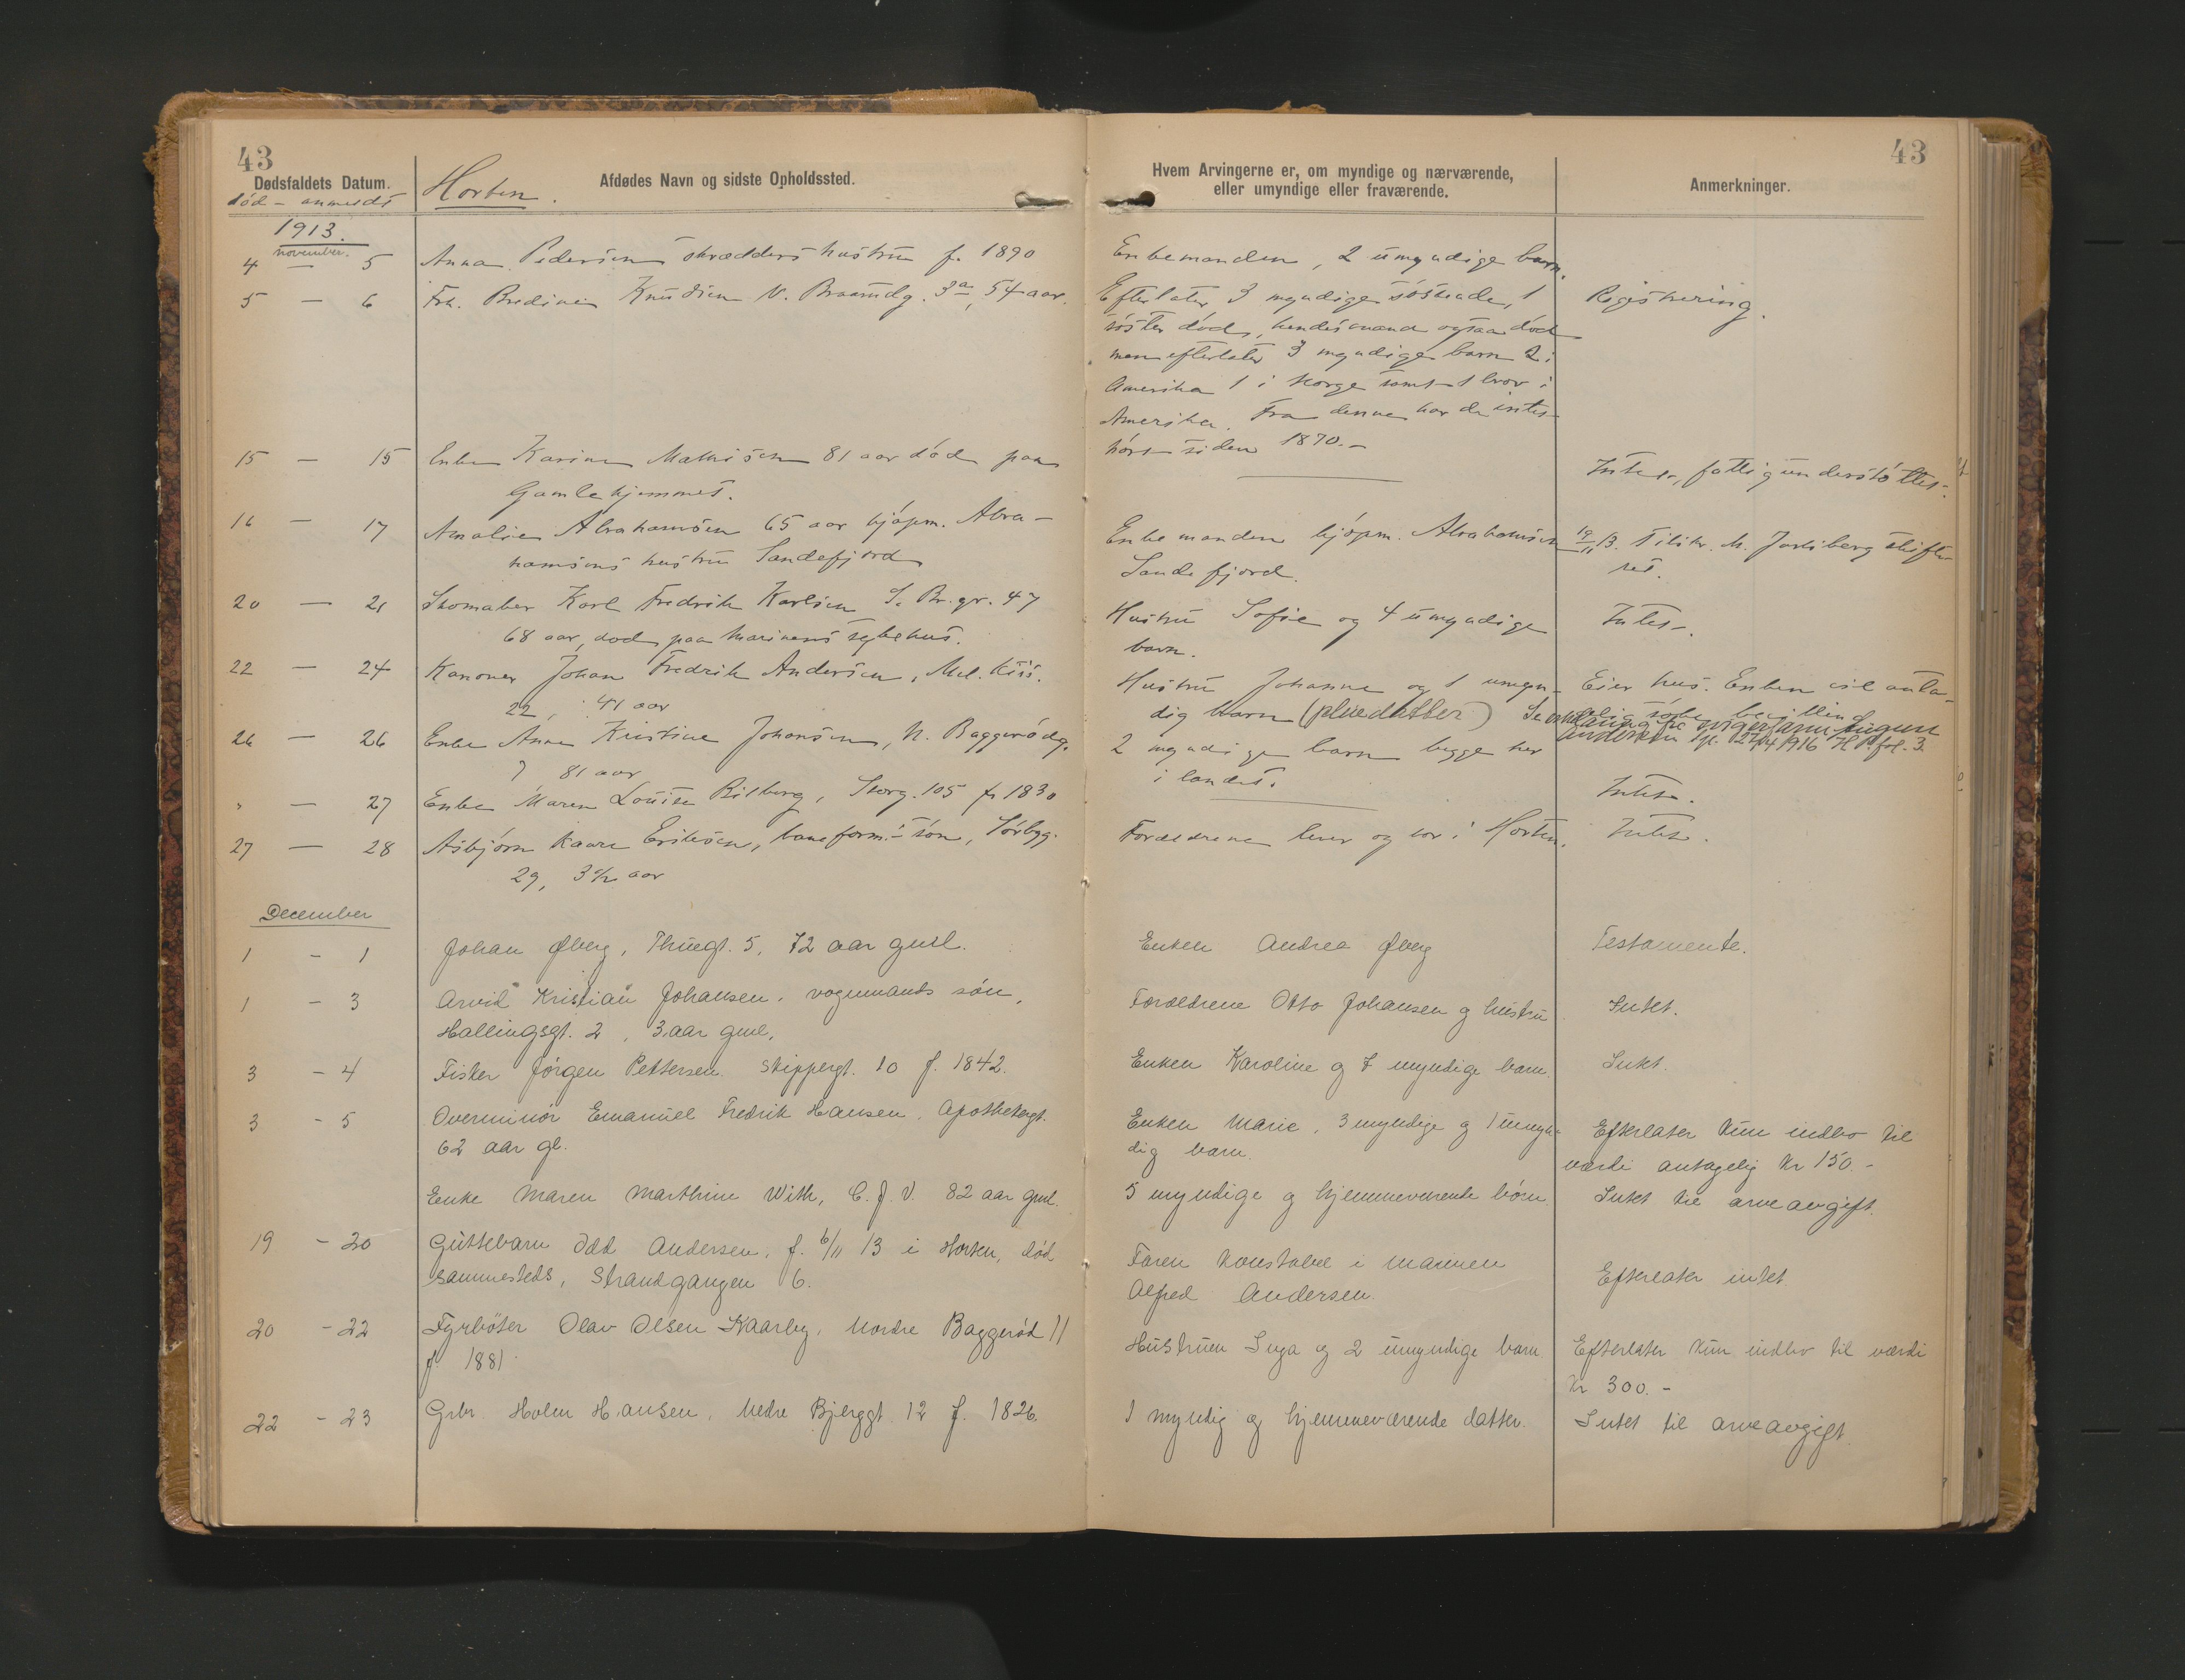 43
Dødsfaldets Datum.
død – anmeldt
Horten.
Afdødes Navn og sidste Opholdssted.
1913.
november.
4 — 5 Anna Pedersen skrædders hustru f. 1890
5 — 6 Frk. Bredine Knudsen N. Braarudg. 3a, 54 aar.
15 — 15 Enke Karine Mathisen 81 aar død paa
Gamlehjemmet.
16 — 17 Amalie Abrahamsen 65 aar kjøpm. Abra-
hamsens hustru Sandefjord
20 — 21 Skomaker Karl Fredrik Karlsen S. Br. gr. 47
68 aar, død paa Marinens sykehus.
22 — 24 Kanoner Johan Fredrik Andersen, Mel.
22, 41 aar
26 — 26 Enke Anne Kristine Johansen, N. Baggerødg.
7 81 aar
" — 27 Enke Maren Louise Bilberg, Storg. 105 f. 1830
27 — 28 Asbjørn Kaare Eriksen, baneform. søn, Sørbyg.
29, 3½ aar
December
1 - 1 Johan Øberg, Thuegt. 5, 72 aar gml.
1 - 3 Arvid Kristian Johansen, vognmands søn,
Hallingsgt. 2, 3 aar gml.
3 - 4 Fisker Jørgen Pettersen Skippergt. 10 f. 1842.
3 - 5 Overminör Emanuel Fredrik Hansen, Apothekergt.
62 aar gl.
Enke Maren Marthine With, C. J. V. 82 aar gml.
19 - 20 Guttebarn Odd Andersen, f. 6/11 13 i Horten, død
sammesteds, Strandgangen 6.
20 - 22 Fyrbøter Olav Olsen Kaarby, Nordre Baggerød 11
f. 1881
22 - 23 Grbr. Holm Hansen, Nedre Bjerggt. 12 f. 1826.
43
Hvem Arvingerne er, om myndige og nærværende,
eller umyndige eller fraværende.
Anmerkninger.
Enkemanden, 2 umyndige barn.
Efterlater 3 myndige søskende, 1
Registrering.
søster død, hendes mand ogsaa død
men efterlater 3 myndige barn 2 i
Amerika 1 i Norge samt 1 bror i
Amerika. Fra denne har de intet
hørt siden 1870.-
Intet, fattigunderstøttet.
Enkemanden kjøpm. Abrahamsen
Sandefjord.
19/11 13. Tilskr. M. Jarlsberg skifte-
ret.
Hustru Sofie og 4 umyndige
barn.
Intet.
Hustru Johanne og 1 umyn-
dig barn (pleiedatter)
Eier hus. Enken vil anta-
gelig søke bevilling
Andersen 27/4 1916 fol. 3.
2 myndige barn begge her
i landet.
Intet.
Forældrene lever og bor i Horten.
Intet.
Enken Andrea Øberg
Testamente.
Forældrene Otto Johansen og hustru
Intet.
Enken Karoline og 7 myndige barn.
Intet.
Enken Marie, 3 myndige og 1 umyn-
dig barn.
Efterlater kun indbo til
værdi antagelig kr 150.-
5 myndige og hjemmeværende børn.
Intet til arveavgift.
Faren konstabel i marinen
Alfred Andersen.
Efterlater intet
Hustruen Inga og 2 umyndige barn
Efterlater kun indbo til værdi
kr 300.-
1 myndig og hjemmeværende datter.
Intet til arveavgift